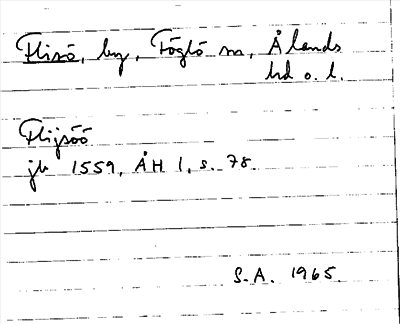 Flisö, by, Föglö sn, Ålands
hd o. l.
Flijsöö
jb 1559, ÅH 1, s. 78.
S.A. 1965.